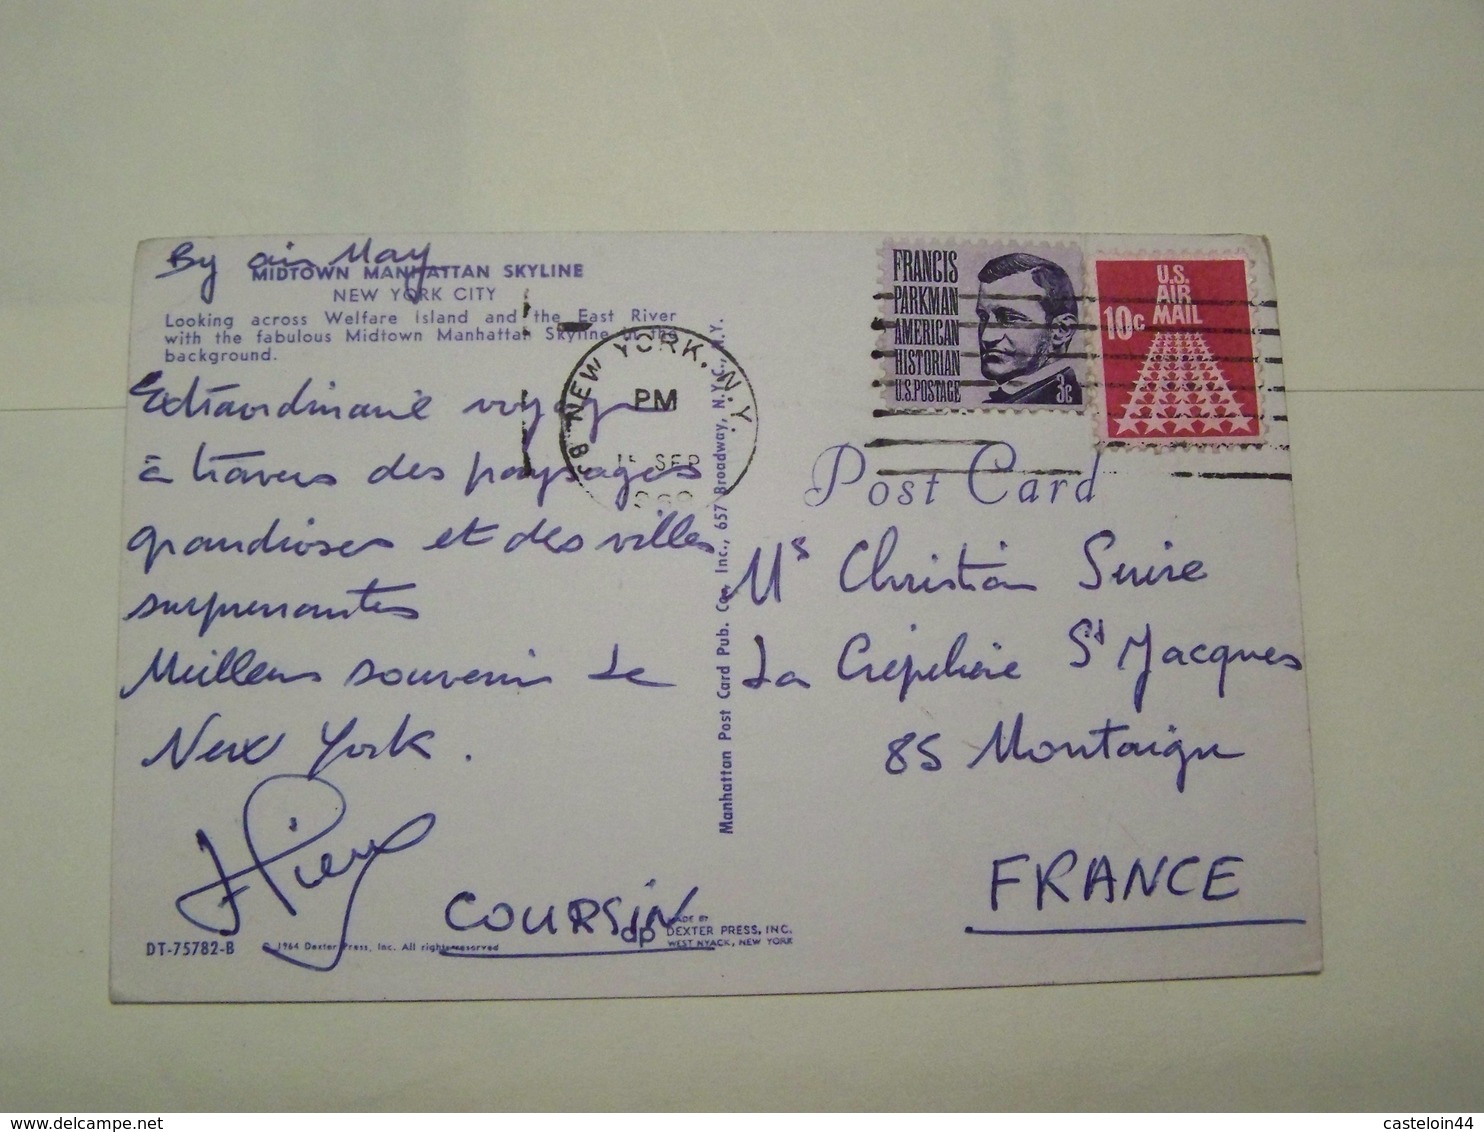 By air May
MIDTOWN MANHATTAN SKYLINE
NEW YORK CITY
Looking across Welfare Island and the East River
with the fabulous Midtown Manhattan Skyline in the
background.
Extraordinaire voyage
à travers des paysages
grandioses et des villes
surprenantes
Meilleurs souvenirs de
New York.
Pierre
COURSIN
DT-75782-B
© 1964 Dexter Press, Inc. All rights reserved
dp
MADE BY
DEXTER PRESS, INC.
WEST NYACK, NEW YORK
Manhattan Post Card Pub. Co., Inc., 657 Broadway, N.Y.C., N.Y.
NEW YORK, N.Y.
PM
SEP
FRANCIS
PARKMAN
AMERICAN
HISTORIAN
U.S. POSTAGE
3c
U.S.
AIR
MAIL
10c
Post Card
Ms Christian Suire
La Crépelière St Jacques
85 Montaigu
FRANCE
casteloin44